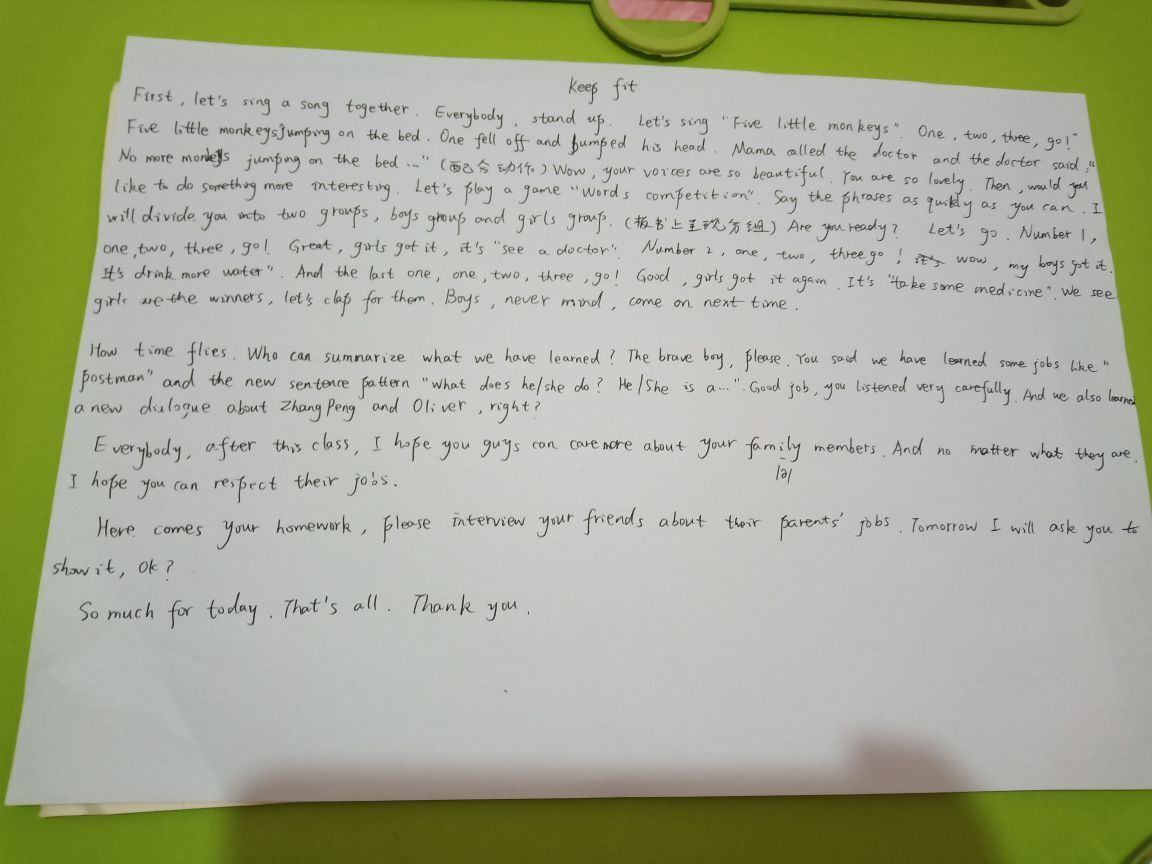 Keep fit
First, let's sing a song together. Everybody, stand up. Let's sing "Five little monkeys". One, two, three, go!"
Five little monkeys jumping on the bed. One fell off and bumped his head. Mama called the doctor and the doctor said,"
No more monkeys jumping on the bed ..." (配合动作) Wow, your voices are so beautiful. You are so lovely. Then, would you
like to do something more interesting. Let's play a game "Words competition". Say the phrases as quikly as you can. I
will divide you into two groups, boys group and girls group. (板书上呈现分组) Are you ready? Let's go. Number 1,
one, two, three, go! Great, girls got it, it's "see a doctor". Number 2, one, two, three go! it's wow, my boys got it.
It's drink more water". And the last one, one, two, three, go! Good, girls got it again. It's "take some medicine". We see
girls are the winners, let's clap for them. Boys, never mind, come on next time.
How time flies. Who can summarize what we have learned? The brave boy, please. You said we have learned some jobs like "
postman" and the new sentence pattern "what does he/she do? He/She is a...". Good job, you listened very carefully. And we also learned
a new dialogue about Zhang Peng and Oliver, right?
Everybody, after this class, I hope you guys can care more about your family members. And no matter what they are.
/ə/
I hope you can respect their jobs.
Here comes your homework, please interview your friends about their parents' jobs. Tomorrow I will ask you to
show it, Ok?
So much for today. That's all. Thank you.